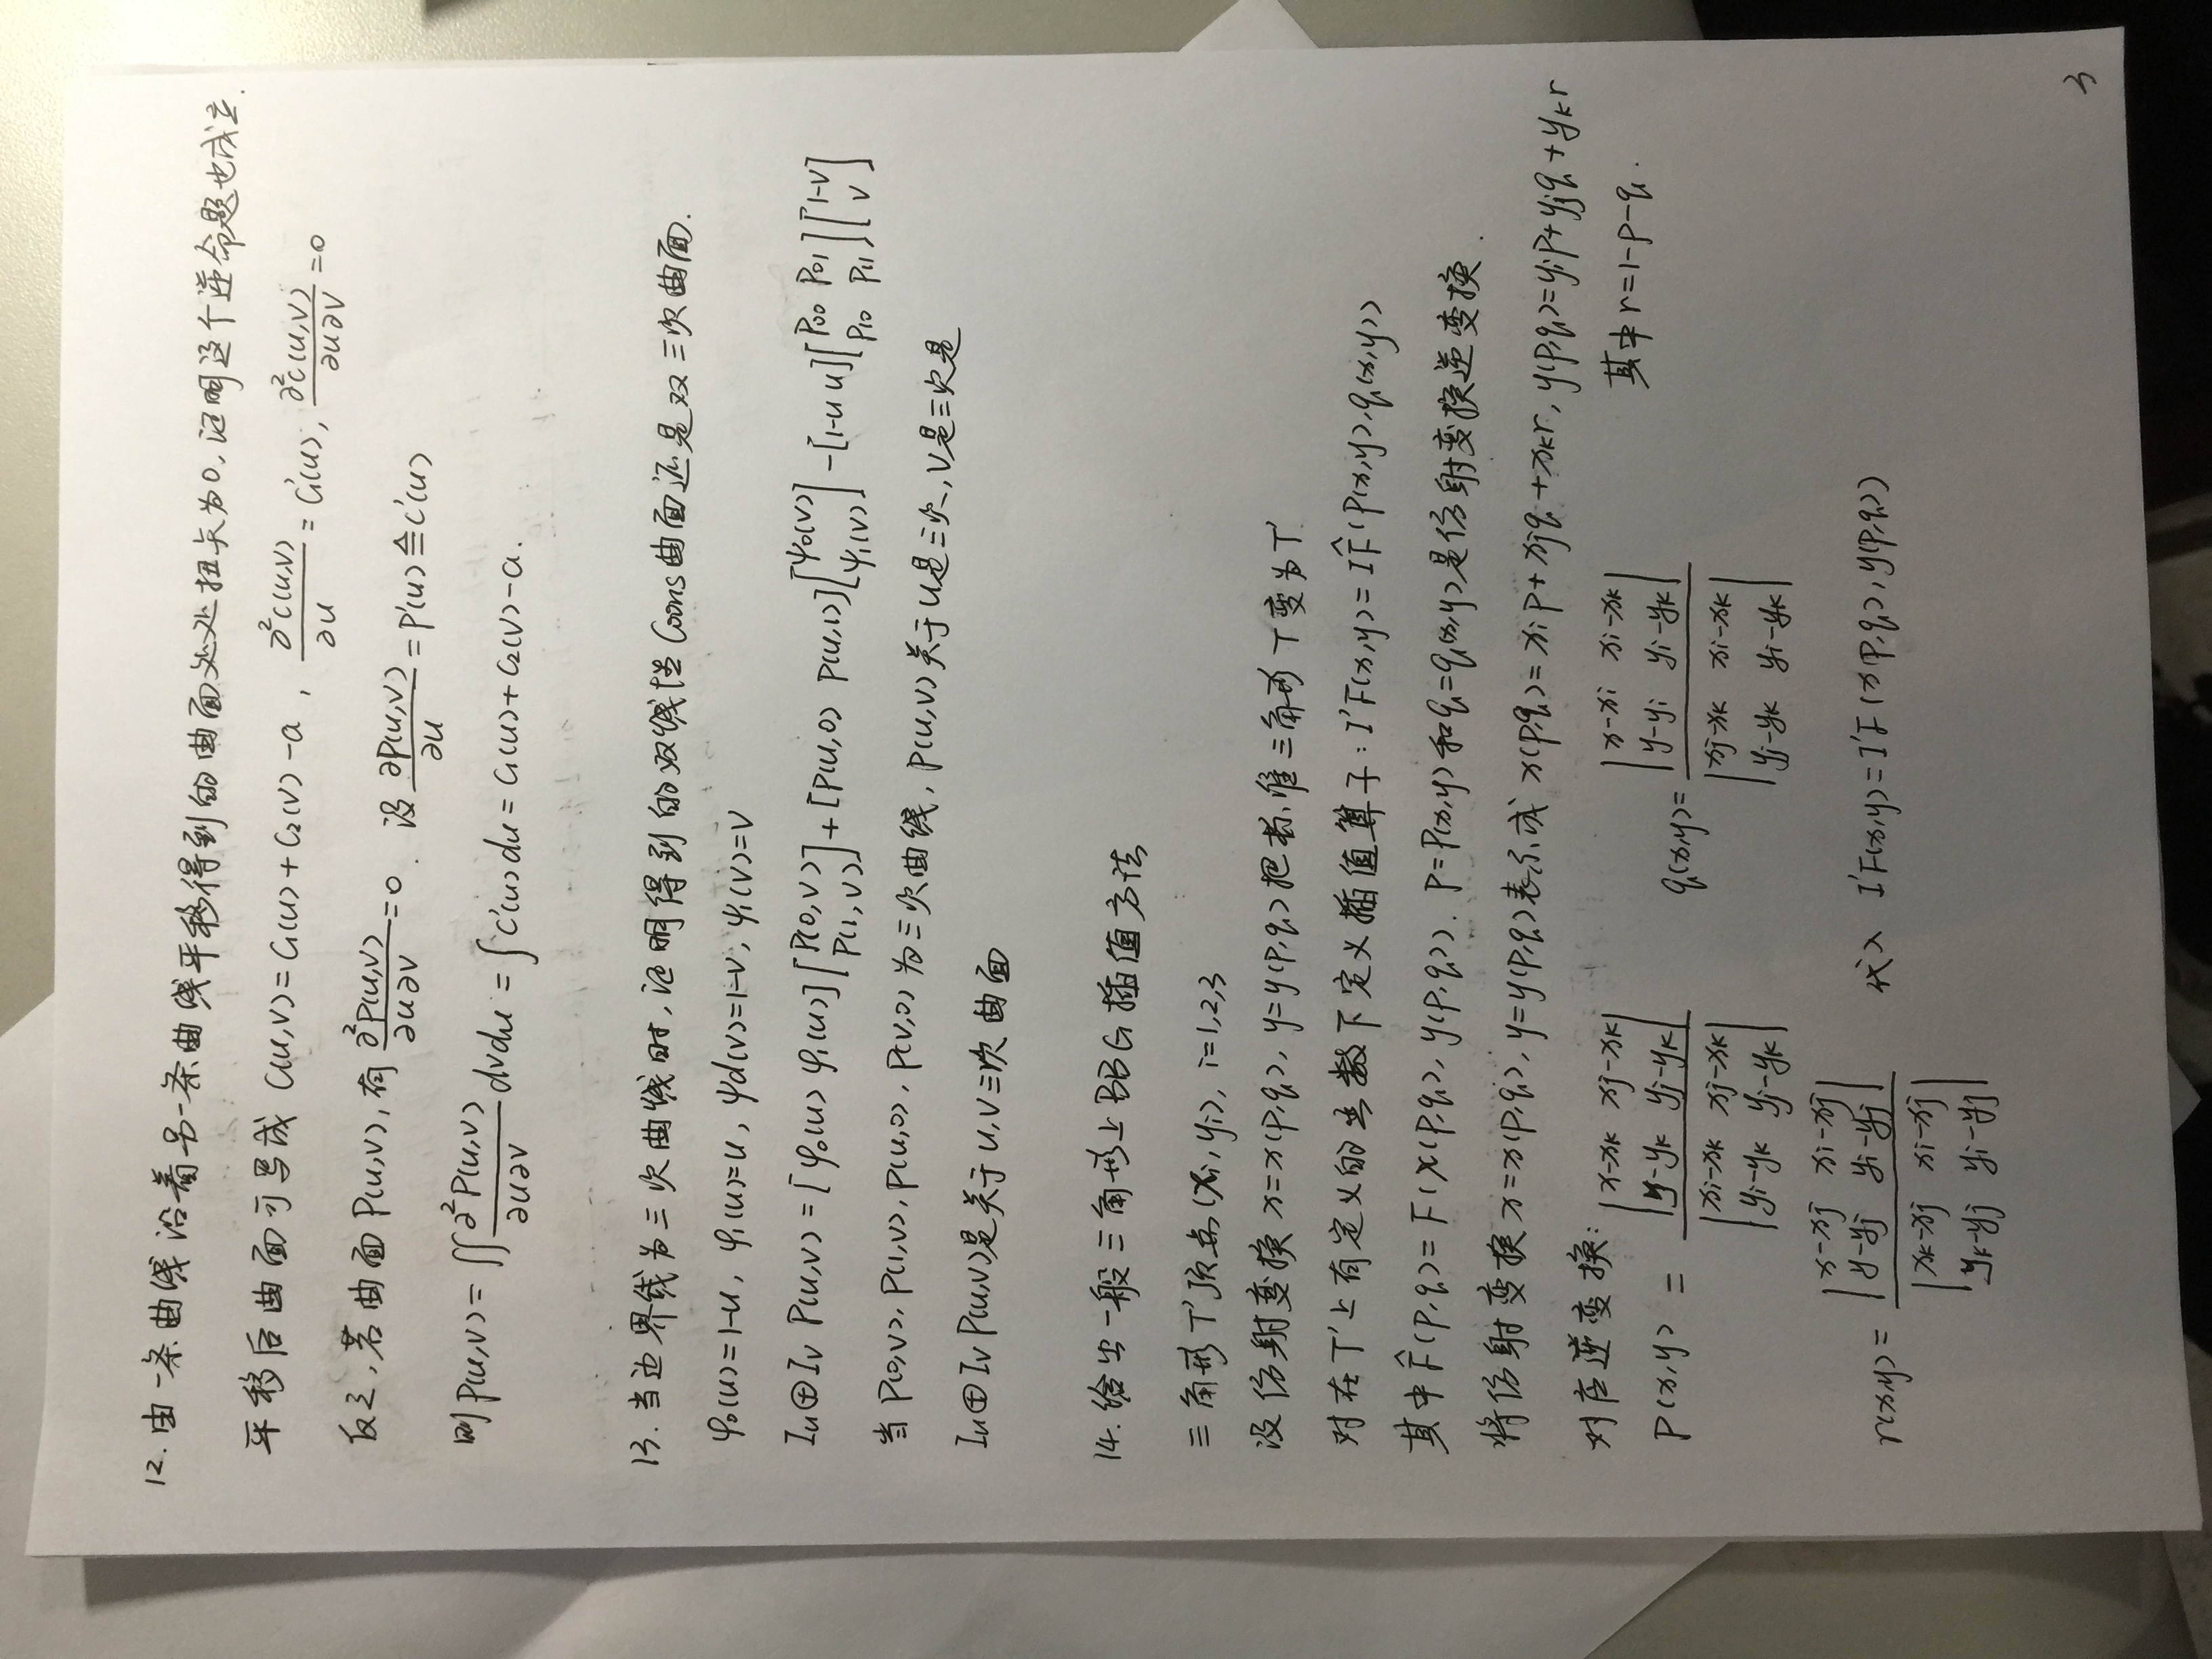 12. 由一条曲线沿着另一条曲线平移得到的曲面处处扭矢为0, 证明这个逆命题也成立.
平移后曲面可写成 C(u,v)=C₁(u)+C₂(v)-a , ∂²C(u,v)/∂u = C₁'(u), ∂²C(u,v)/∂u∂v =0
反之, 若曲面P(u,v), 有 ∂²P(u,v)/∂u∂v =0. 设 ∂P(u,v)/∂u = P'(u) ≜ C'(u)
则P(u,v)= ∬ ∂²P(u,v)/∂u∂v dvdu = ∫C'(u)du = C₁(u)+C₂(v)-a.
13. 当边界线为三次曲线时, 证明得到的双线性Coons曲面还是双三次曲面.
φ₀(u)=1-u, φ₁(u)=u, ψd(v)=1-v, ψ₁(v)=v
Iu⊕Iv P(u,v) = [φ₀(u) φ₁(u)] [P(0,v) ; P(1,v)] + [P(u,0) P(u,1)] [ψ₀(v) ; ψ₁(v)] - [1-u u] [P₀₀ P₀₁ ; P₁₀ P₁₁] [1-v ; v]
当P(0,v), P(1,v), P(u,0), P(v,0)为三次曲线, P(u,v)关于u是三次, v是三次是
Iu⊕Iv P(u,v)是关于u,v三次曲面
14. 给出一般三角形上BBG插值方法
三角形T'顶点(xi, yi), i=1,2,3
设仿射变换 x=x(p,q), y=y(p,q)把标准三角形T变为T'
对在T'上有定义的函数下定义插值算子: I'F(x,y)= IF̂(P(x,y), q(x,y))
其中F̂(p,q)= F(x(p,q), y(p,q)). P=P(x,y)和q=q(x,y)是仿射变换逆变换.
将仿射变换x=x(p,q), y=y(p,q)表示成 x(p,q)=xip+xjq+xkr, y(p,q)=yip+yjq+ykr
对应逆变换: 其中r=1-p-q.
P(x,y) = |x-xk xj-xk ; y-yk yj-yk| / |xi-xk xj-xk ; yi-yk yj-yk| q(x,y)= |x-xi xi-xk ; y-yi yi-yk| / |xj-xk xi-xk ; yj-yk yi-yk|
r(x,y)= |x-xj xi-xj ; y-yj yi-yj| / |xk-xj xi-xj ; yk-yj yi-yj| 代入 I'F(x,y)=I'F(x(p,q), y(p,q))
3